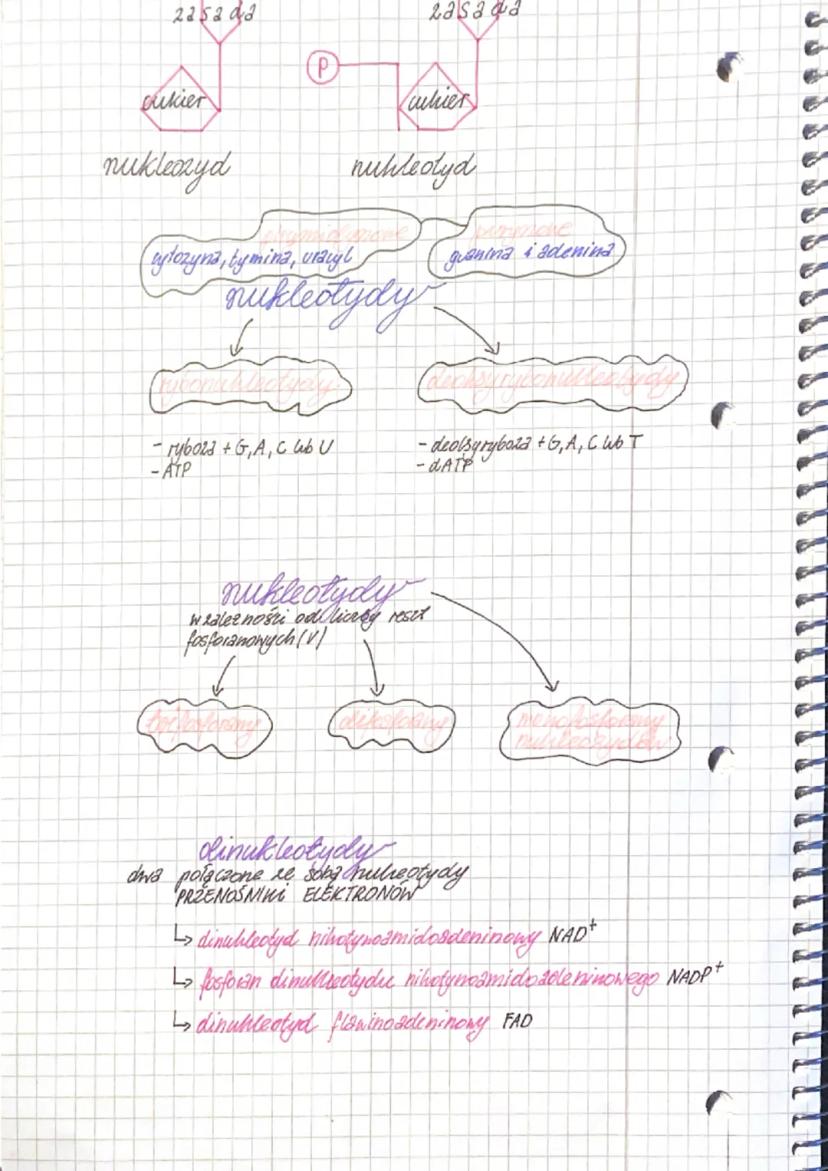 zasada zasada
P
cukier cukier
nukleozyd nukleotyd
pirymidynowe purynowe
cytozyna, tymina, uracyl guanina i adenina
nukleotydy
rybonukleotydy deoksyrybonukleotydy
- ryboza + G, A, C lub U - deoksyryboza + G, A, C lub T
- ATP - dATP
nukleotydy
w zależności od liczby reszt
fosforanowych (V)
trifosforany difosforany monofosforany
nukleozydów
dinukleotydy
dwa połączone ze sobą nukleotydy
PRZENOŚNIKI ELEKTRONÓW
↳ dinukleotyd nikotynoamidoadeninowy NAD⁺
↳ fosforan dinukleotydu nikotynoamidoadeninowego NADP⁺
↳ dinukleotyd flawinoadeninowy FAD